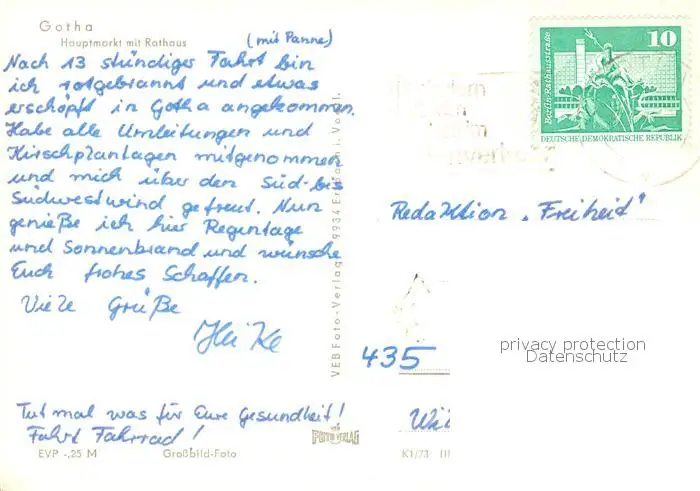 Gotha
Hauptmarkt mit Rathaus
(mit Panne)
Nach 13 stündiger Fahrt bin
ich rotgebrannt und etwas
erschöpft in Gotha angekommen.
Habe alle Umleitungen und
Kirschplantagen mitgenommen
und mich über den Süd- bis
Südwestwind gefreut. Nun
genieße ich hier Regentage
und Sonnenbrand und wünsche
Euch frohes Schaffen.
Viele Grüße
Heike
Tut mal was für Eure Gesundheit!
Fahrt Fahrrad!
EVP -,25 M
Großbild-Foto
VEB Foto-Verlag 9934 i. Vogtl.
K1/73 III
10
Berlin-Rathausstraße
DEUTSCHE DEMOKRATISCHE REPUBLIK
Redaktion „Freiheit"
435
privacy protection
Datenschutz